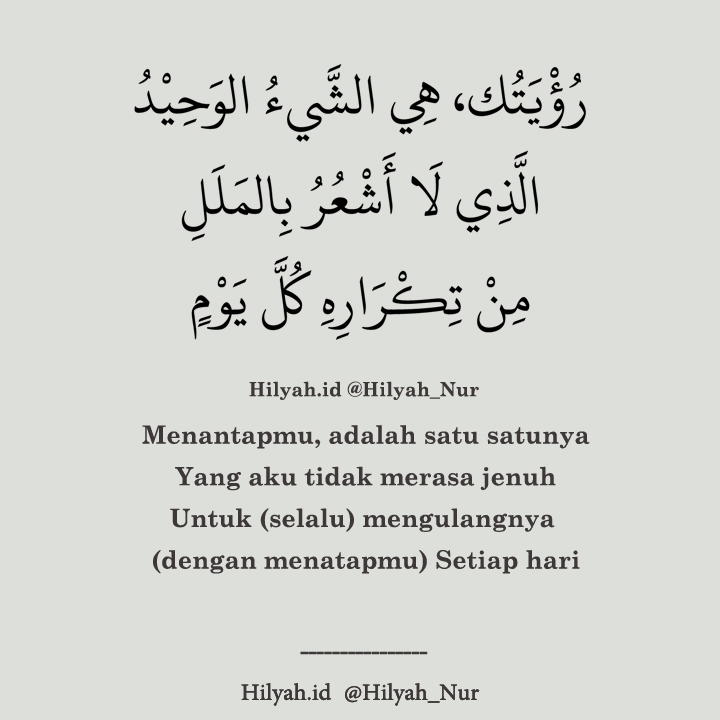 رُؤْيَتُك، هِي الشَّيءُ الوَحِيْدُ
الَّذِي لَا أَشْعُرُ بِالمَلَلِ
مِنْ تِكْرَارِهِ كُلَّ يَوْمٍ
Hilyah.id @Hilyah_Nur
Menantapmu, adalah satu satunya
Yang aku tidak merasa jenuh
Untuk (selalu) mengulangnya
(dengan menatapmu) Setiap hari
________________
Hilyah.id @Hilyah_Nur